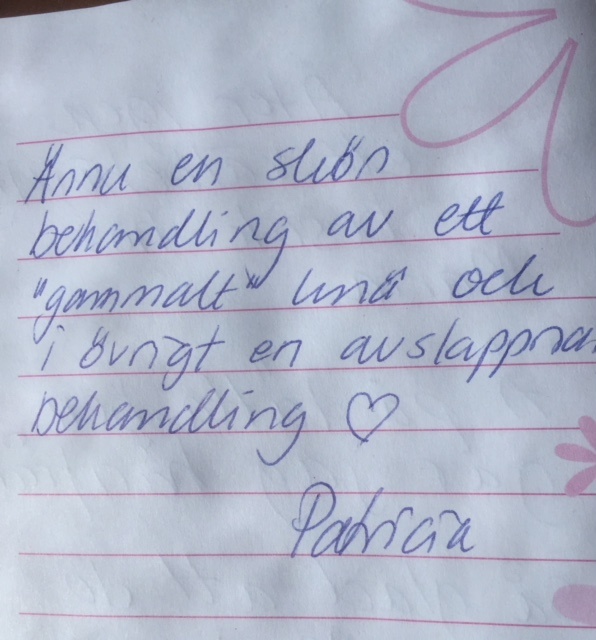 Ännu en skön
behandling av ett
"gammalt" knä och
i övrigt en avslappna
behandling ♡
Patricia